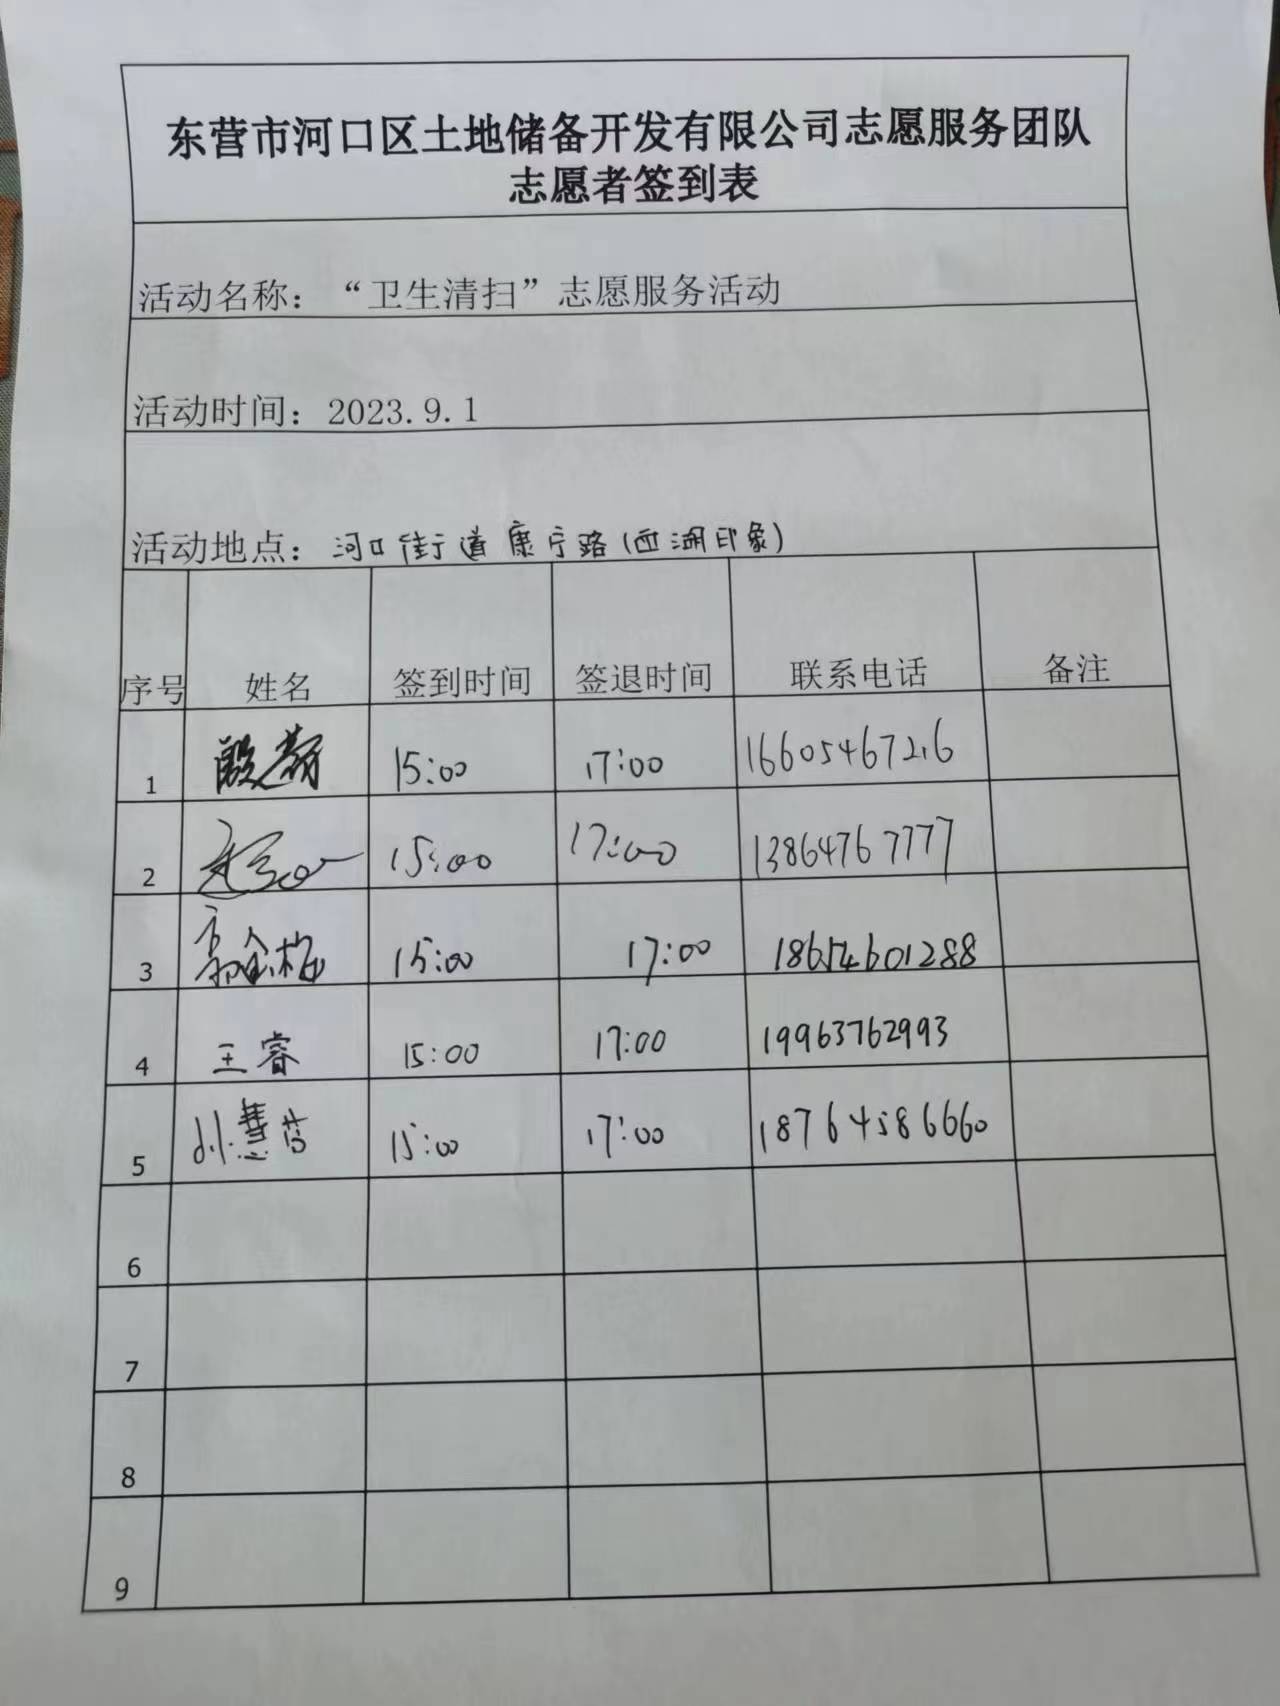 东营市河口区土地储备开发有限公司志愿服务团队
志愿者签到表
活动名称：“卫生清扫”志愿服务活动
活动时间：2023.9.1
活动地点：河口街道康宁路(西湖印象)
序号 姓名 签到时间 签退时间 联系电话 备注
1 殷 15:00 17:00 16605467216
2 15:00 17:00 13864767777
3 郭金梅 15:00 17:00 18654601288
4 王睿 15:00 17:00 19963762993
5 孙慧 15:00 17:00 18764586660
6
7
8
9